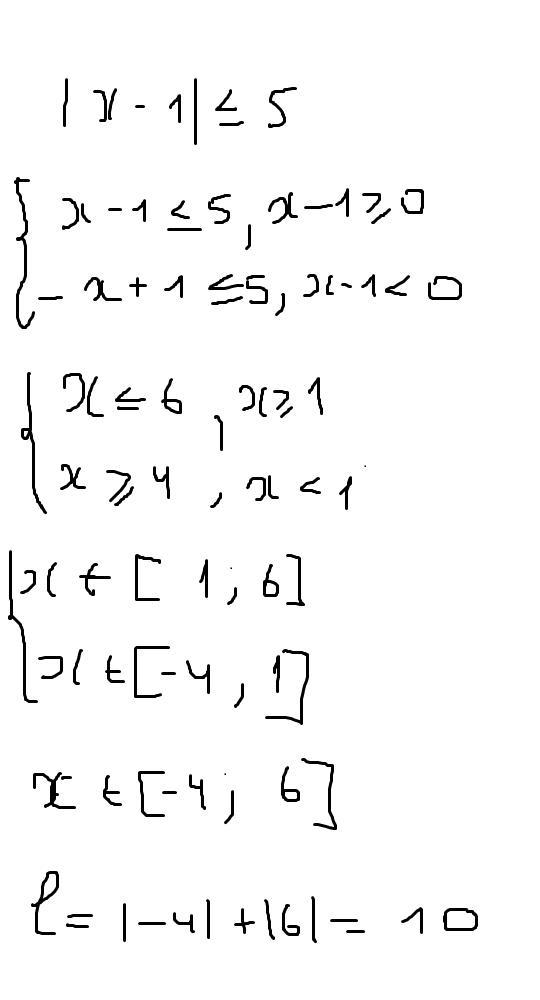 |x - 1| ≤ 5
{ x - 1 ≤ 5, x - 1 ⩾ 0
- x + 1 ≤ 5, x - 1 < 0
{ x ≤ 6, x ⩾ 1
x ⩾ 4, x < 1
{ x ∈ [1; 6]
x ∈ [-4, 1]
x ∈ [-4; 6]
ℓ = |-4| + |6| = 10